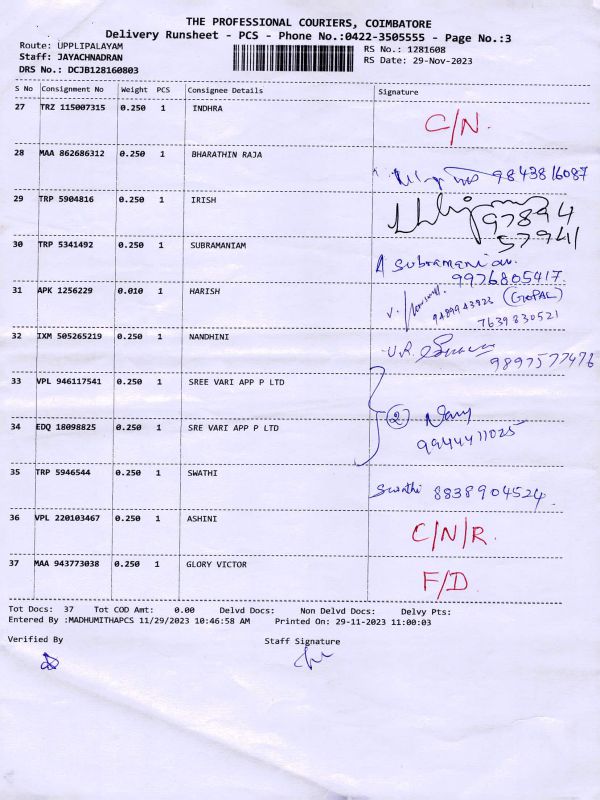 THE PROFESSIONAL COURIERS, COIMBATORE
Delivery Runsheet - PCS - Phone No.:0422-3505555 - Page No.:3
Route: UPPLIPALAYAM RS No.: 1281608
Staff: JAYACHNADRAN RS Date: 29-Nov-2023
DRS No.: DCJB128160803
S No Consignment No Weight PCS Consignee Details Signature
27 TRZ 115007315 0.250 1 INDHRA C/N.
28 MAA 862686312 0.250 1 BHARATHIN RAJA 9843816087
29 TRP 5904816 0.250 1 IRISH 97894
57941
30 TRP 5341492 0.250 1 SUBRAMANIAM A Subramanian.
9976805417.
31 APK 1256229 0.010 1 HARISH V. (GOPAL)
9489943923
7639830521
32 IXM 505265219 0.250 1 NANDHINI U.R. 9897577476
33 VPL 946117541 0.250 1 SREE VARI APP P LTD
34 EDQ 18098825 0.250 1 SRE VARI APP P LTD 2
9944411025
35 TRP 5946544 0.250 1 SWATHI Swathi 8838904524.
36 VPL 220103467 0.250 1 ASHINI C/N/R.
37 MAA 943773038 0.250 1 GLORY VICTOR F/D.
Tot Docs: 37 Tot COD Amt: 0.00 Delvd Docs: Non Delvd Docs: Delvy Pts:
Entered By :MADHUMITHAPCS 11/29/2023 10:46:58 AM Printed On: 29-11-2023 11:00:03
Verified By Staff Signature